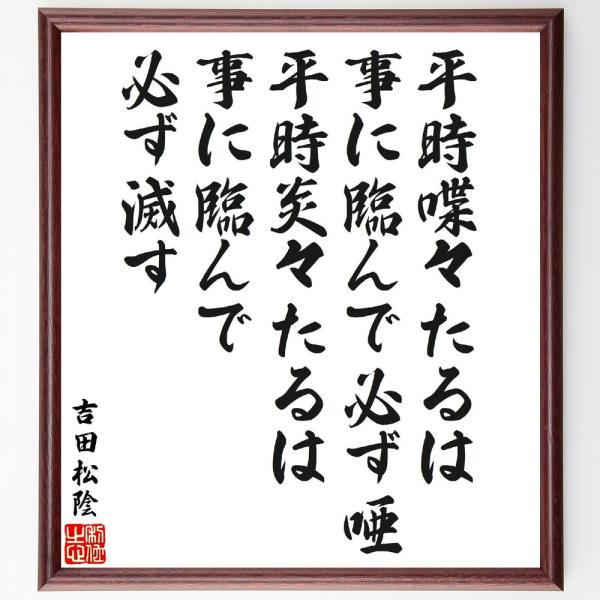 平時喋々たるは
事に臨んで必ず唖
平時炎々たるは
事に臨んで
必ず滅す
吉田松陰